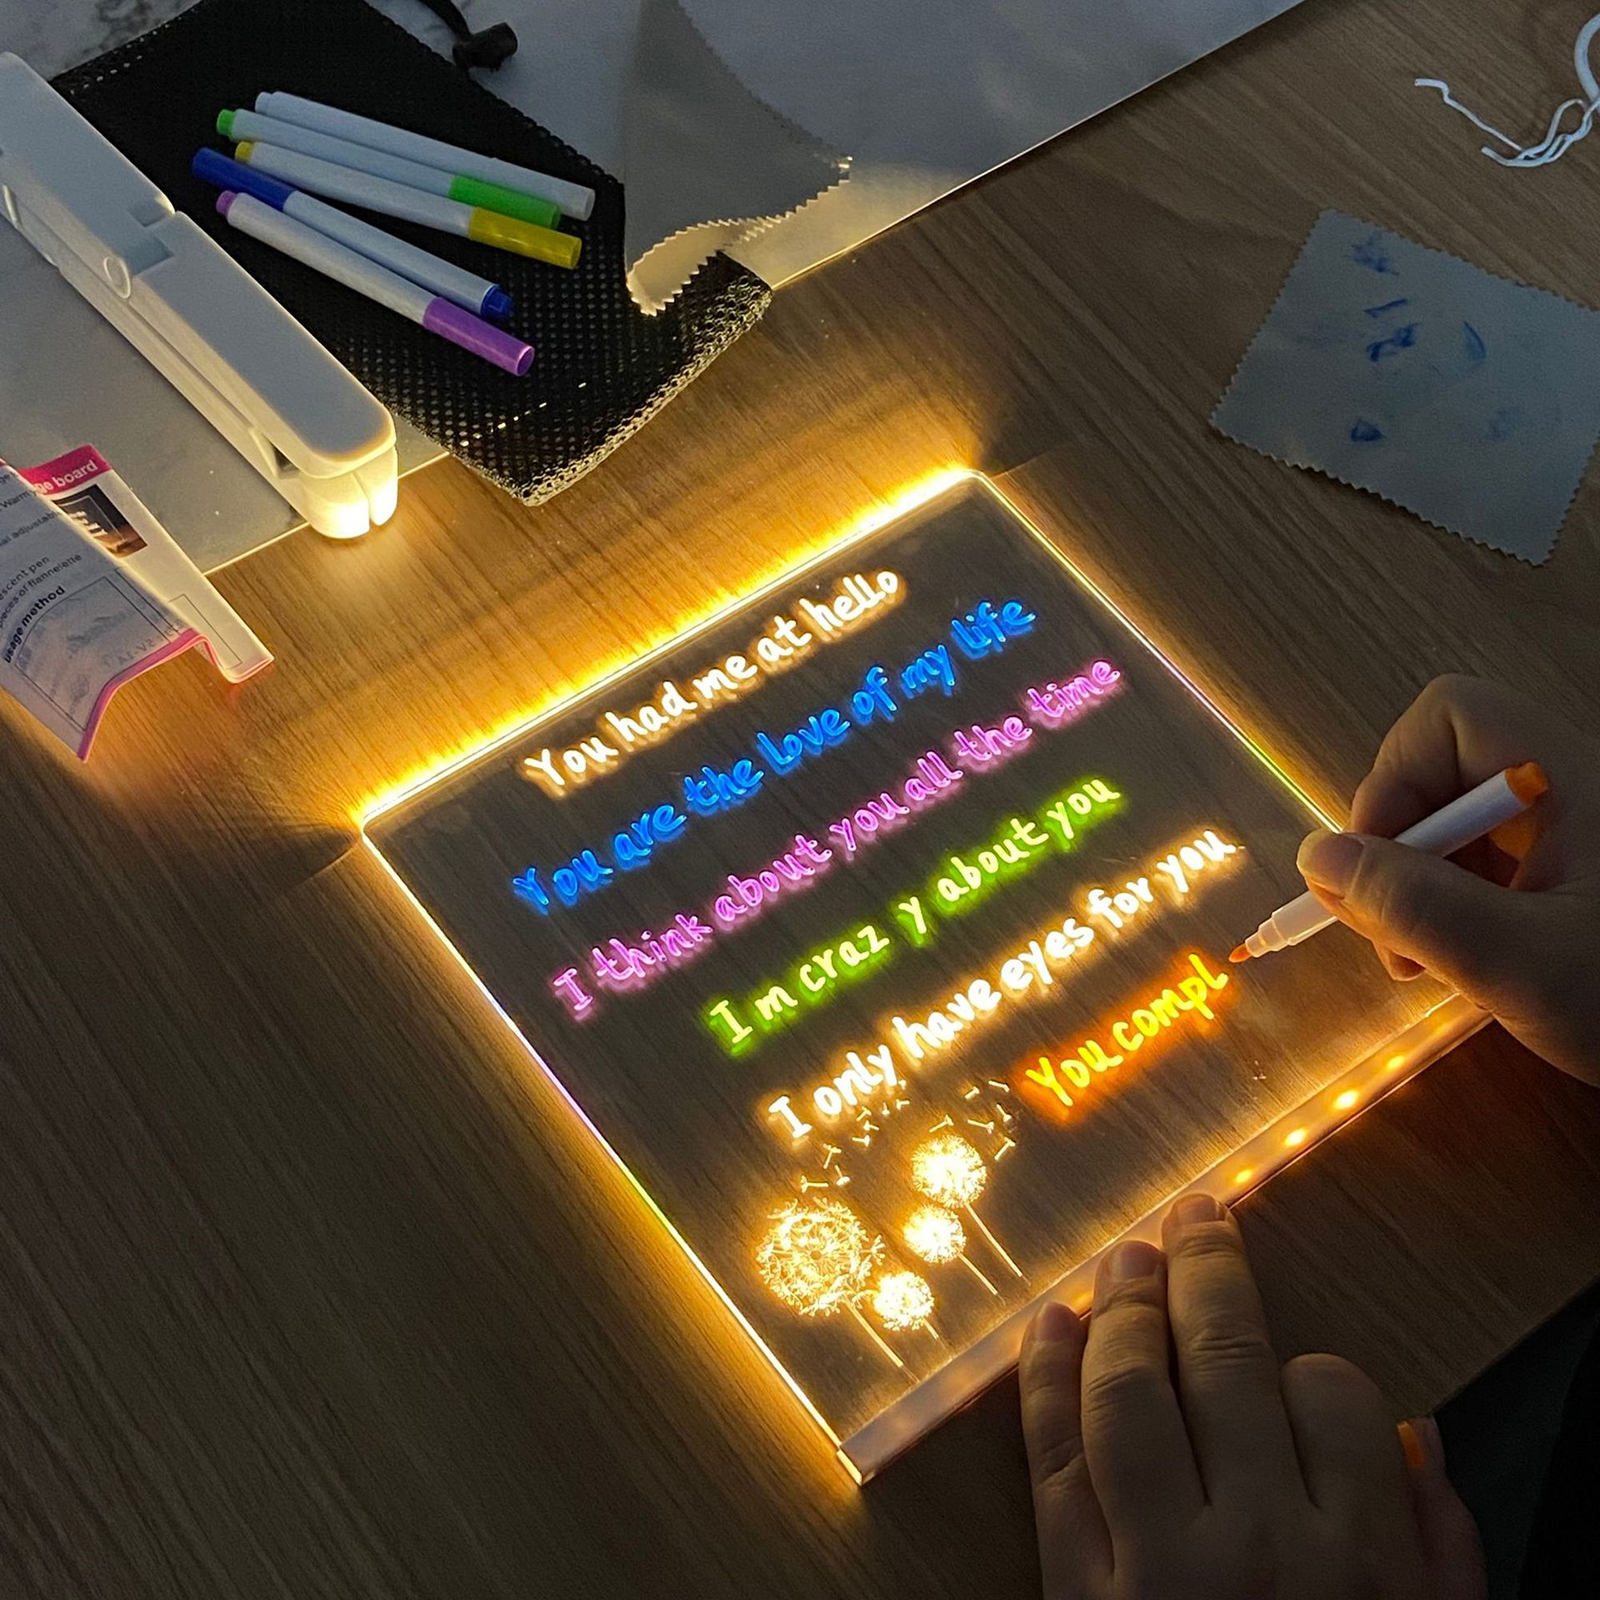 You had me at hello
You are the love of my life
I think about you all the time
Im craz y about you
I only have eyes for you
You compl
ge board
Warm
adjustab
escent pen
pieces of flannelette
usage method